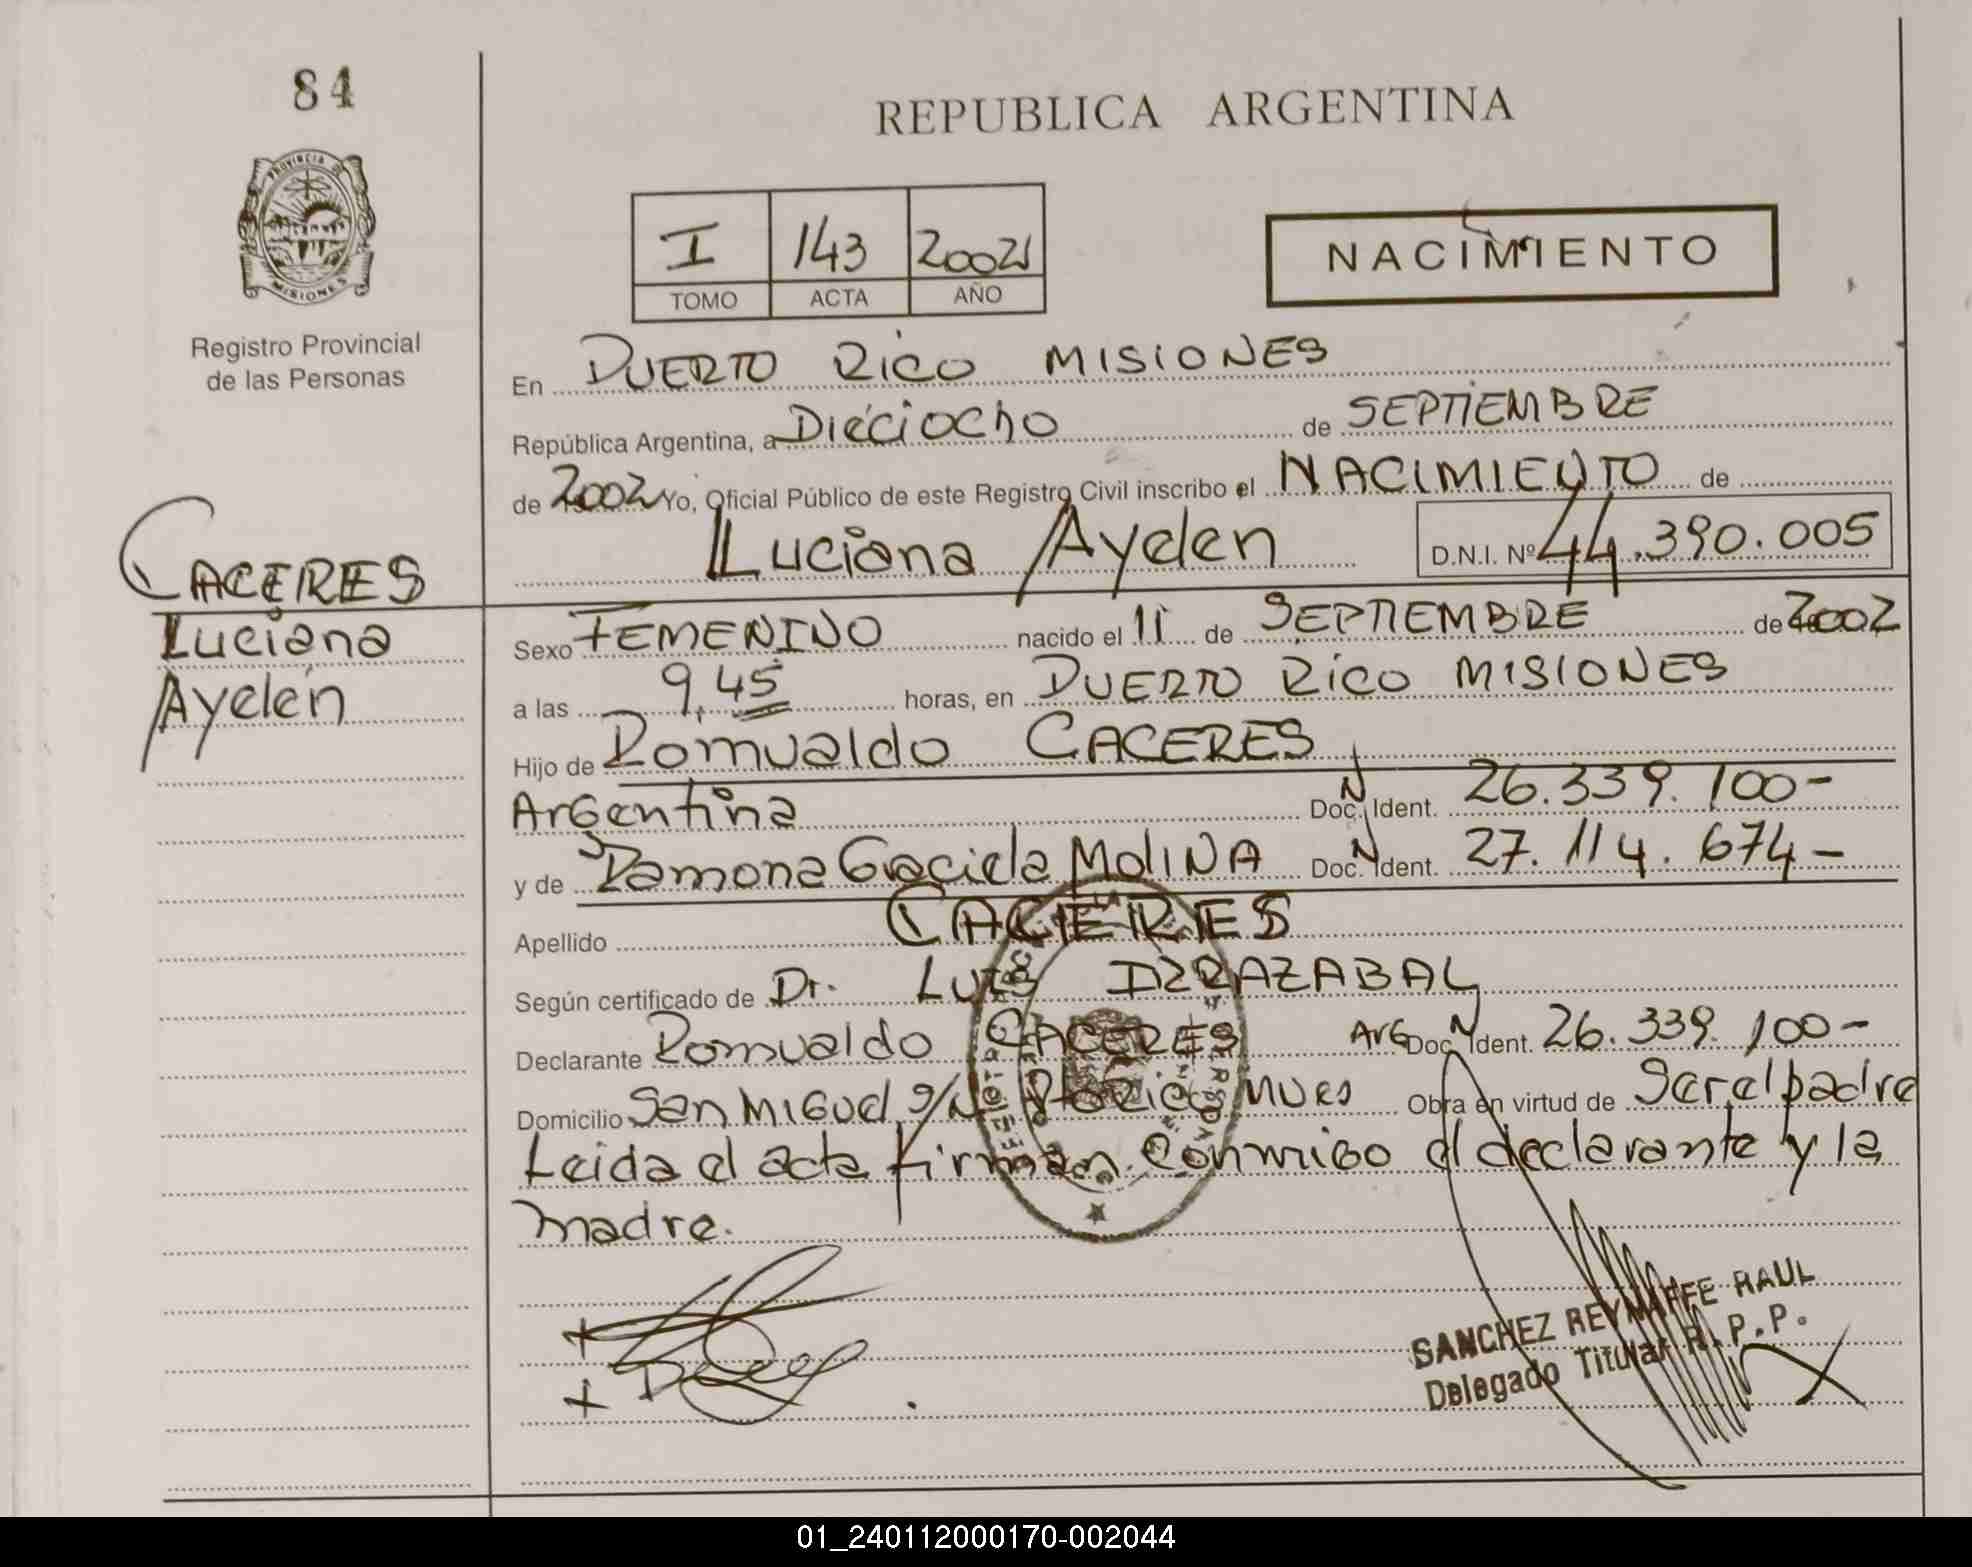 84
REPUBLICA ARGENTINA
PROVINCIA DE
MISIONES
Registro Provincial
de las Personas
I 143 2002
TOMO ACTA AÑO
NACIMIENTO
En PUERTO RICO MISIONES
República Argentina, a Dieciocho de SEPTIEMBRE
de 2002 Yo, Oficial Público de este Registro Civil inscribo el NACIMIENTO de
Luciana Ayelen D.N.I. Nº 44.390.005
CACERES
Luciana
Ayelén
Sexo FEMENINO nacido el 11 de SEPTIEMBRE de 2002
a las 9,45 horas, en PUERTO RICO MISIONES
Hijo de Romualdo CACERES
Argentina Doc. N Ident. 26.339.100-
y de Ramona Graciela MOLINA Doc. N Ident. 27.114.674-
Apellido CACERES
Según certificado de Dr. LUIS IRRAZABAL
Declarante Romualdo CACERES ARG Doc. N Ident. 26.339.100-
Domicilio San Miguel s/N Obra en virtud de Ser el padre
Leida el acta firman conmigo el declarante y la
madre.
SANCHEZ REYNAFFE RAUL
Delegado Titular R.P.P.
01_240112000170-002044